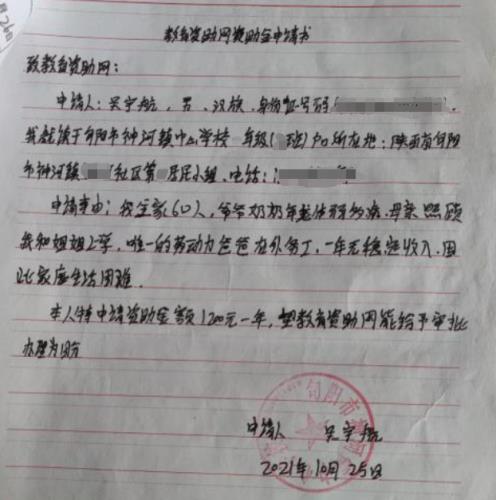 教育资助网资助金申请书
致教育资助网：
申请人：吴宇航，男、汉族，身份证号码
我就读于旬阳市神河镇中心学校 年级（ 班）户口所在地：陕西省旬阳
市神河镇 社区第 居民小组，电话：
申请事由：我全家（6口）人，爷爷奶奶年老体弱多病，母亲照顾
我和姐姐上学，唯一的劳动力爸爸在外务工，一年无稳定收入，因
此家庭生活困难．
本人特申请资助金额1200元一年，望教育资助网能给予审批
办理为盼
申请人 吴宇航
2021年10月25日
旬阳市